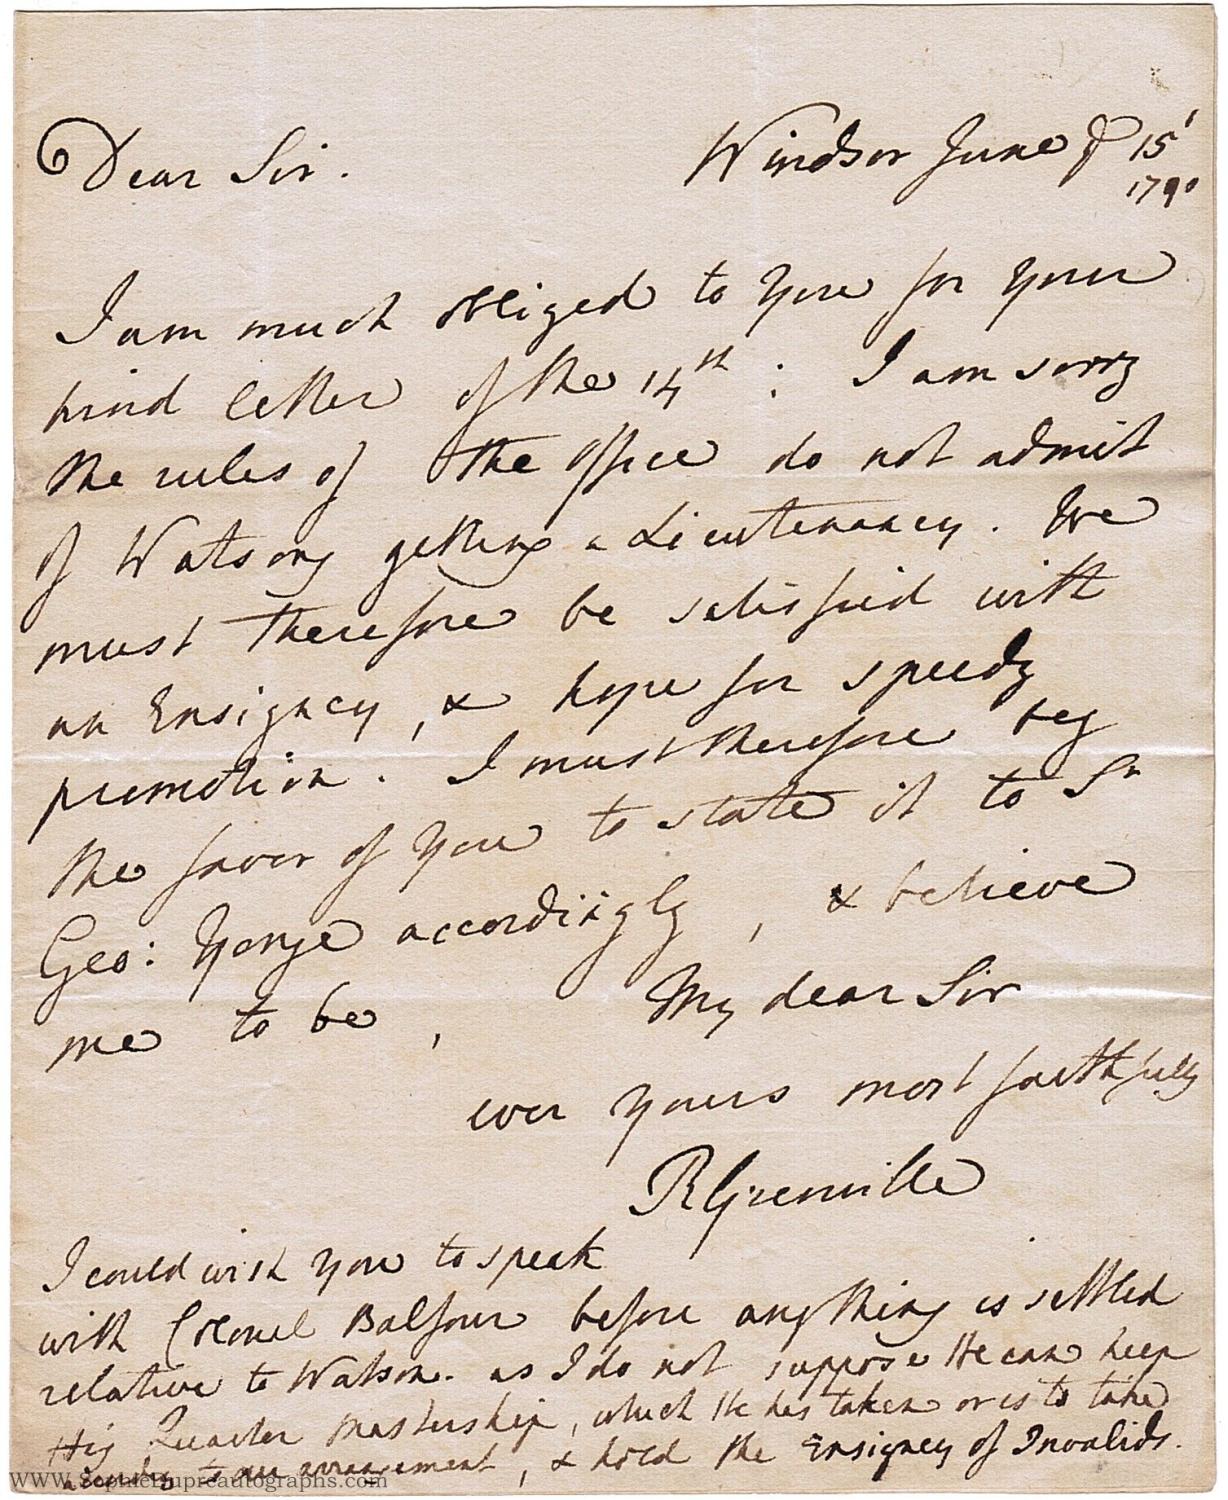 Dear Sir. Windsor June ye 15
1790
I am much obliged to You for your
kind letter of the 14th: I am sorry
the rules of the office do not admit
of Watsons getting a Lieutenancy. We
must therefore be satisfied with
an Ensigncy, & hope for speedy
promotion. I must therefore beg
the favor of You to state it to Sr
Geo: Yonge accordingly, & believe
me to be, My dear Sir
ever Yours most faithfully
RGrenville
I could wish You to speak
with Colonel Balfour before anything is settled
relative to Watson. as I do not suppose He can keep
His Quarter Mastership, which He has taken or is to take
according to our arrangement, & hold the Ensigncy of Invalids.
www.SophieDupreautographs.com